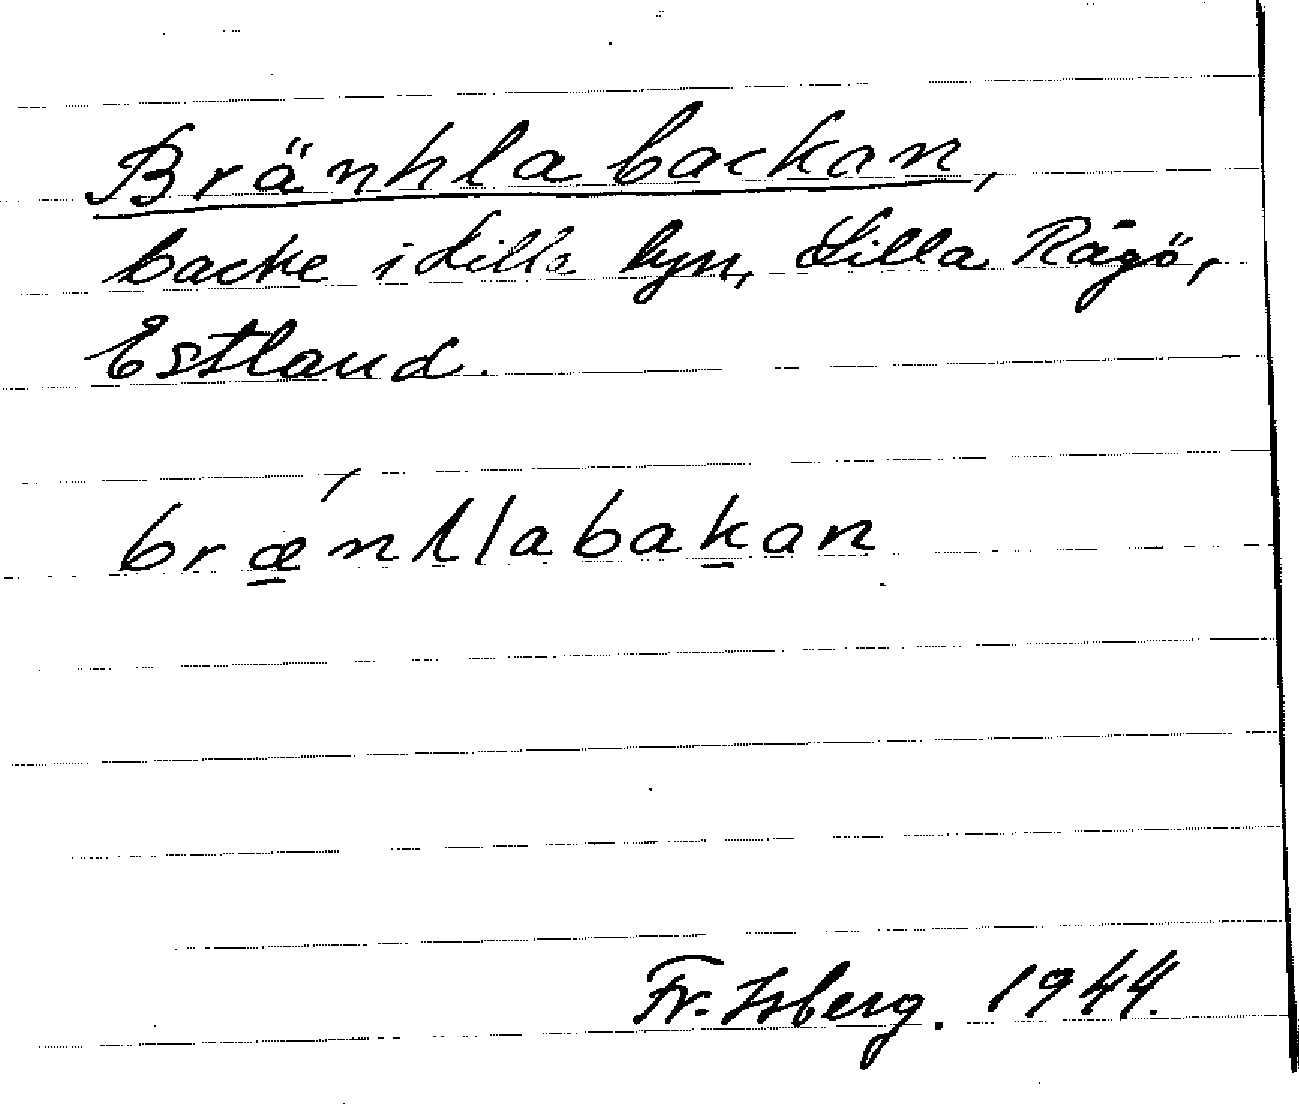 Bränhla backan,
backe i Lilla byn, Lilla Rågö,
Estland.
brænhlabakan
Fr. Isberg. 1944.